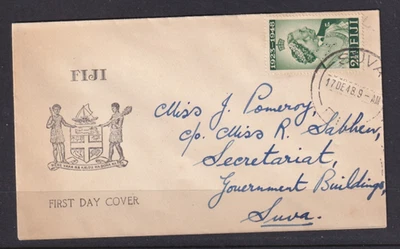 1923-1948
FIJI
2½d
SUVA
17 DE 48. 9 - AM
FIJI
Miss J. Pomeroy,
c/o. Miss R. Sabben,
Secretariat,
Government Buildings,
Suva.
FIRST DAY COVER